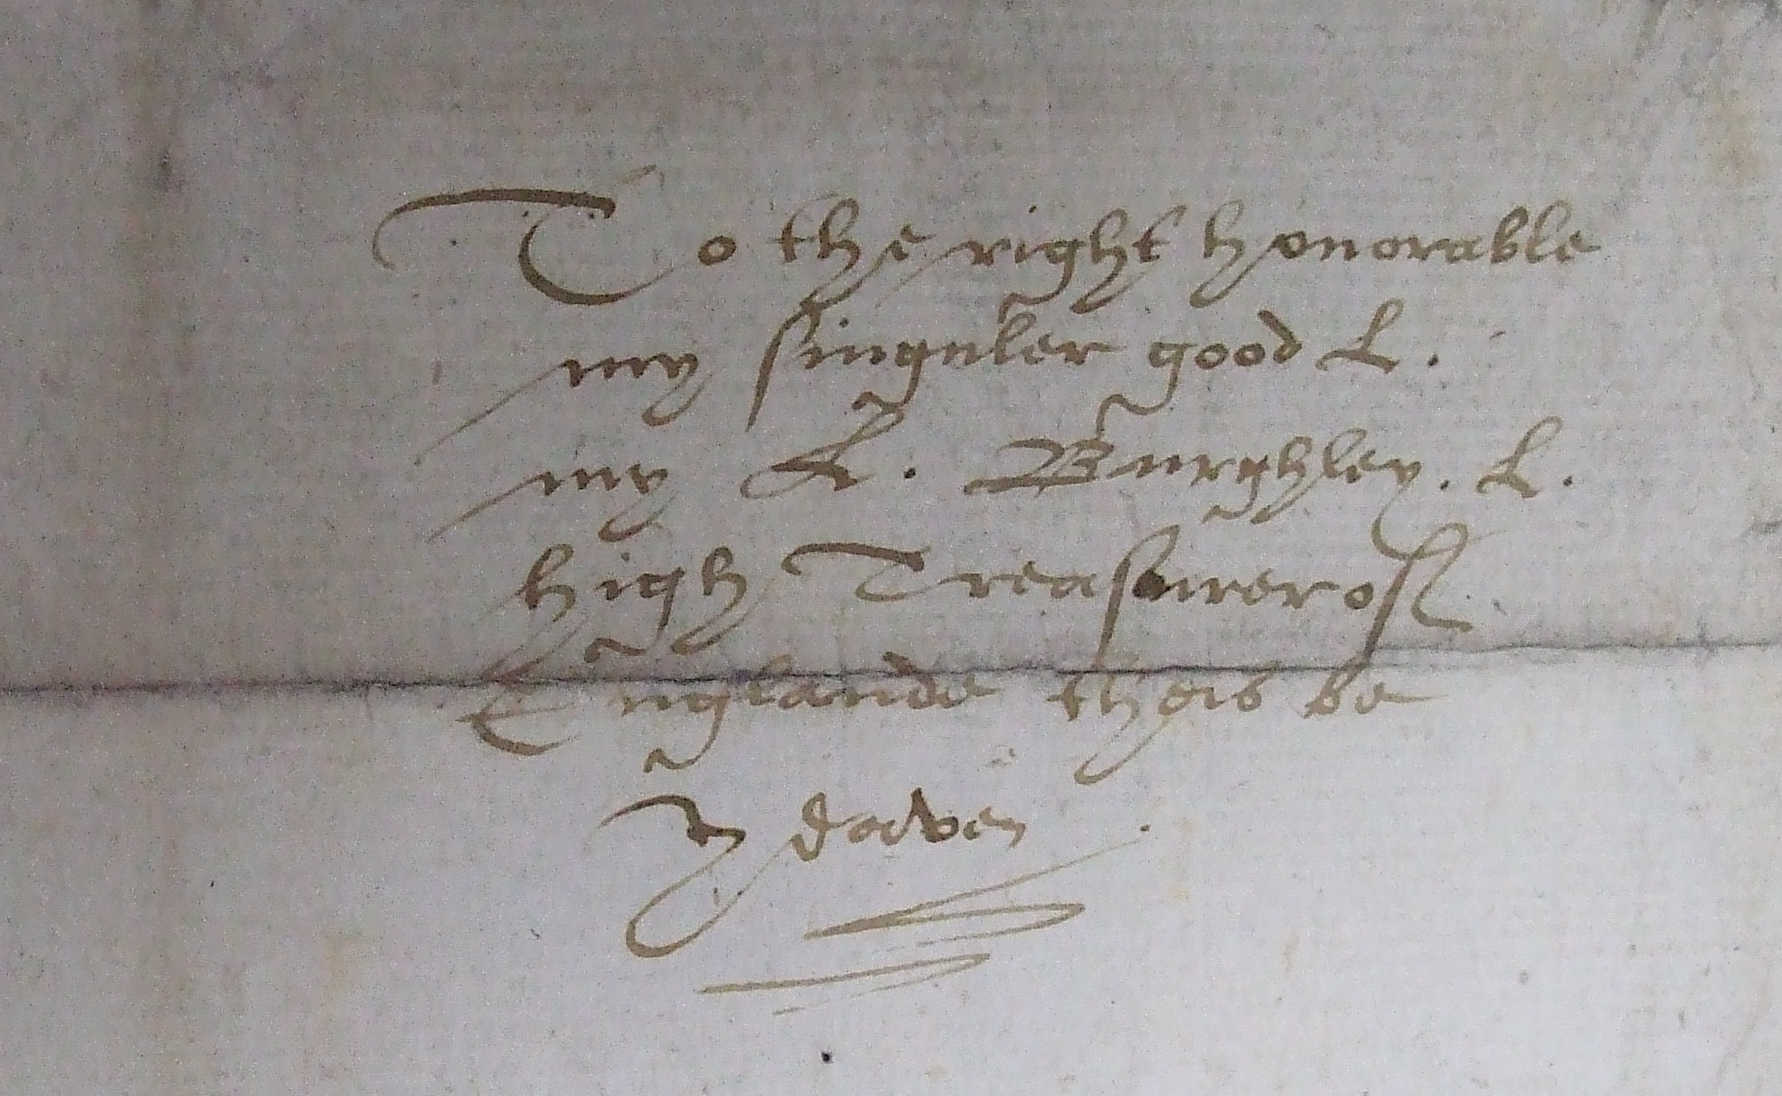 To the right honorable
my singuler good L.
my L. Burghley. L.
high Treasurer of
Englande theis be
y doven